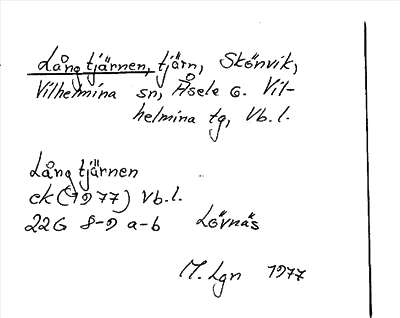 Långtjärnen, tjärn, Skönvik,
Vilhelmina sn, Åsele o. Vil-
helmina tg, Vb.l.
Långtjärnen
ek (1977) Vb.l.
22G 8-9 a-b Lövnäs
M. Lgn 1977